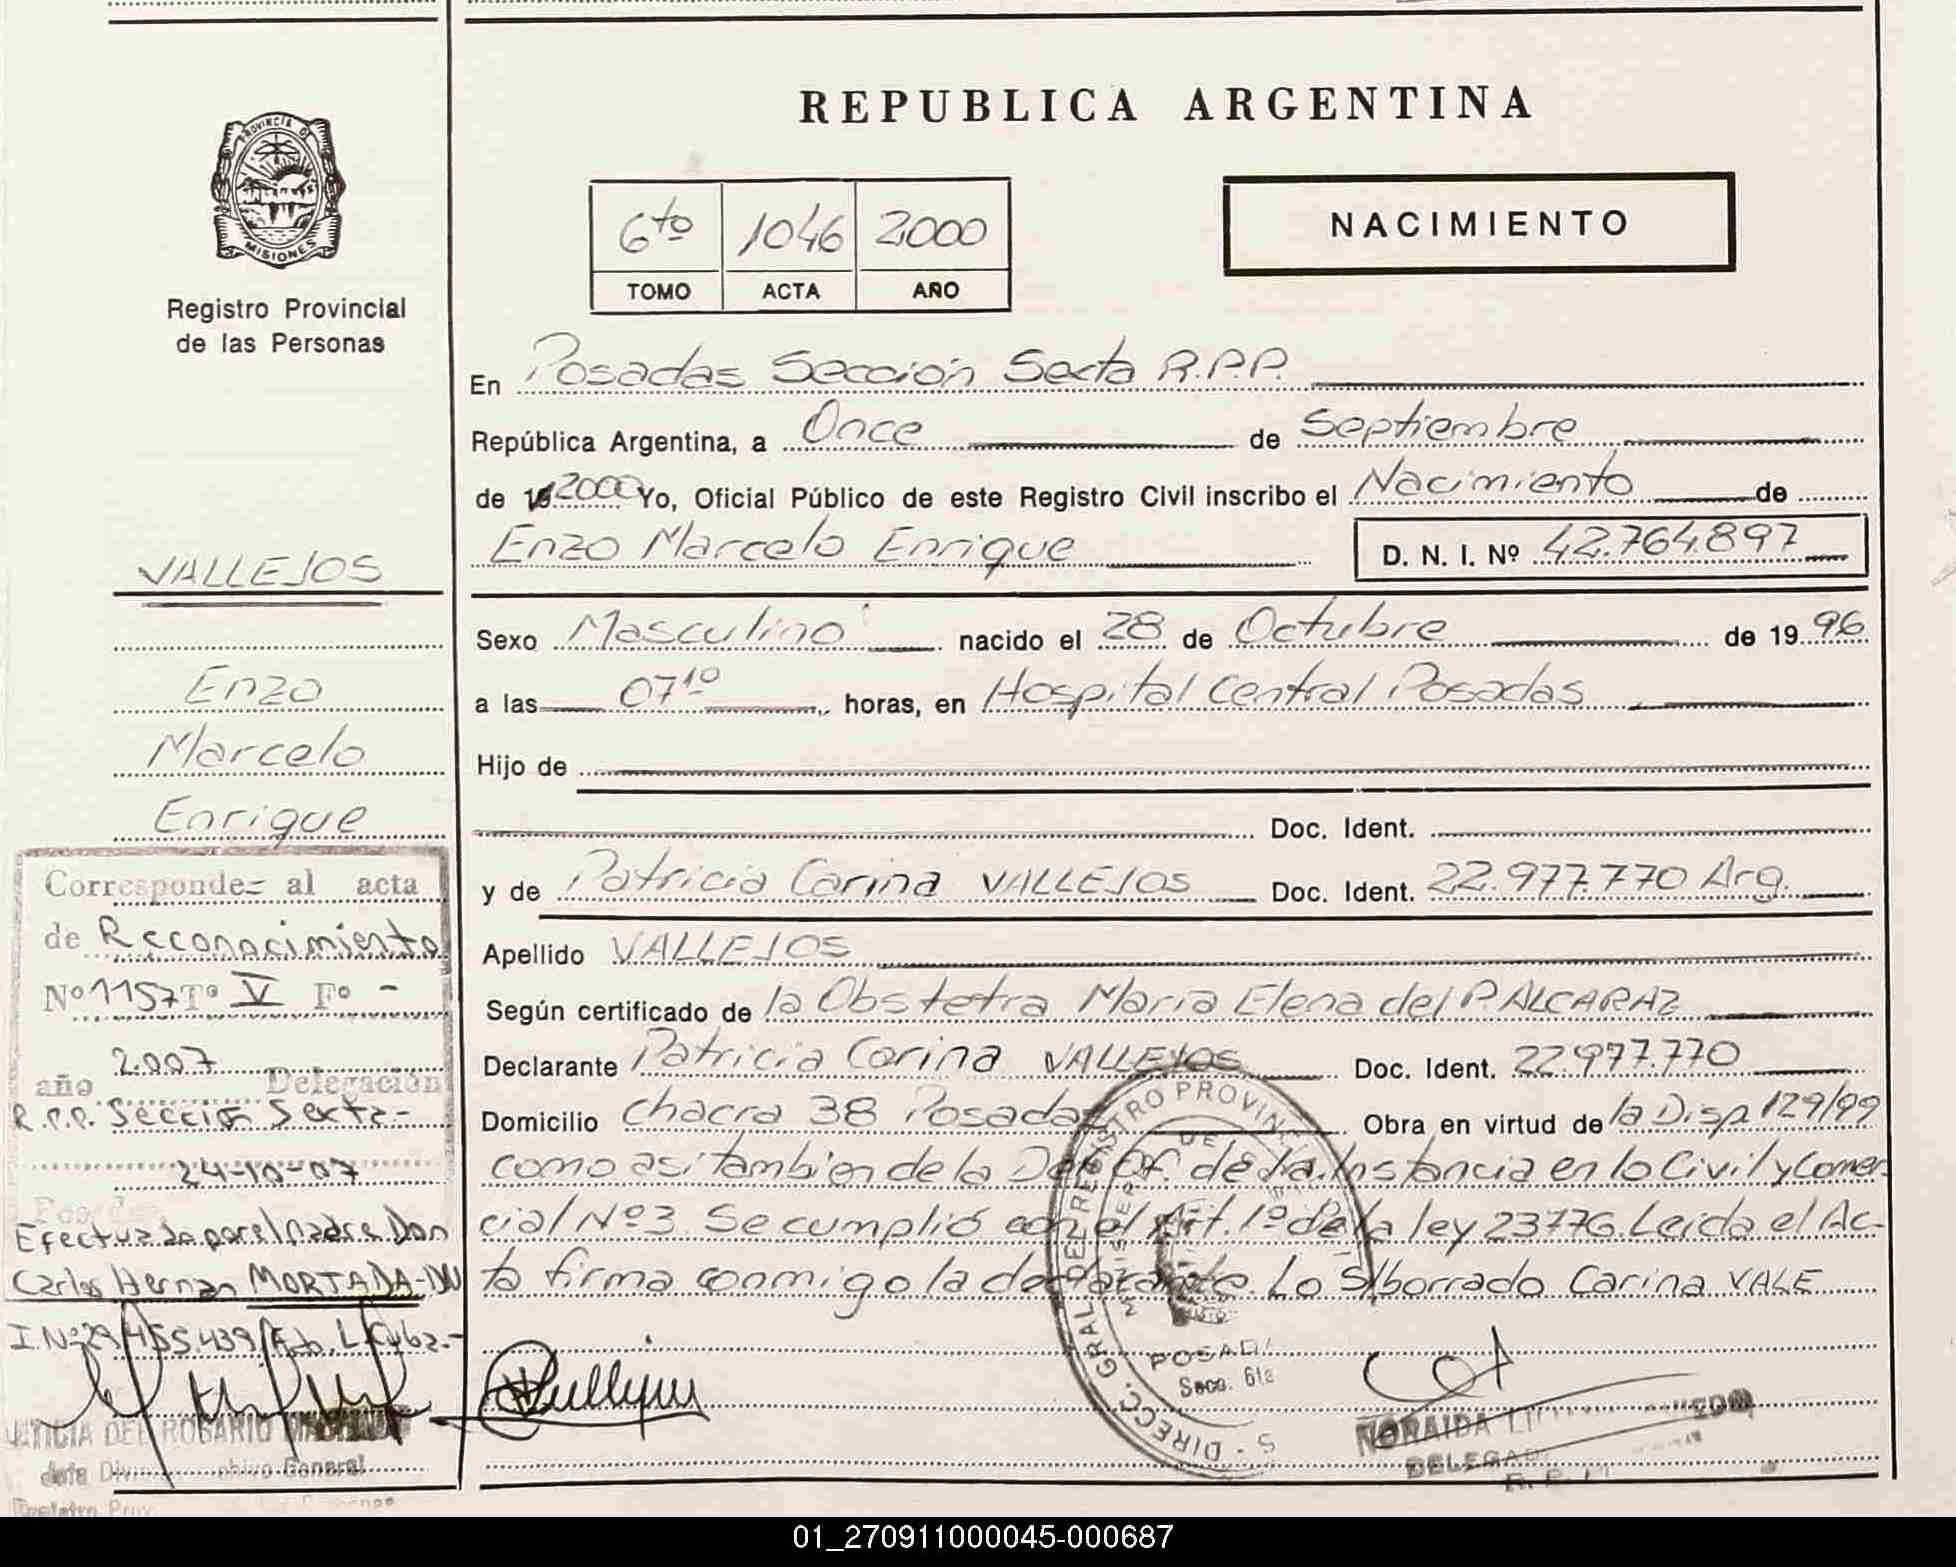 REPUBLICA ARGENTINA
PROVINCIA DE
MISIONES
Registro Provincial
de las Personas
6to 1046 2000
TOMO ACTA AÑO
NACIMIENTO
En Posadas Sección Sexta R.P.P.
República Argentina, a Once de Septiembre
de 19 2000 Yo, Oficial Público de este Registro Civil inscribo el Nacimiento de
Enzo Marcelo Enrique D. N. I. Nº 42.764.897
Sexo Masculino nacido el 28 de Octubre de 19 96
a las 07 10 horas, en Hospital Central Posadas
Hijo de
Doc. Ident.
y de Patricia Carina VALLEJOS Doc. Ident. 22.977.770 Arg.
Apellido VALLEJOS
Según certificado de la Obstetra Maria Elena del P. ALCARAZ
Declarante Patricia Carina VALLEJOS Doc. Ident. 22.977.770
Domicilio Chacra 38 Posadas Obra en virtud de la Disp 129/99
como asi tambien de la Def. Of. de 1a. Instancia en lo Civil y Comer-
cial Nº 3. Se cumplió con el Art. 1º de la ley 23776. Leida el Ac-
ta firma conmigo la declarante. Lo S/borrado Carina VALE
VALLEJOS
Enzo
Marcelo
Enrique
Corresponde al acta
de Reconocimiento
Nº 1157 Tº V Fº -
año 2.007 Delegación
R.P.P. Sección Sexta-
24-10-07
Efectuada por el Padre Don
Carlos Hernan MORTADA-DN
I. Nº 29.455.439
DEL ROSARIO
General
DIRECC. GRAL. DEL REGISTRO PROVINCIAL DE
POSADAS
Secc. 6ta
NORAIDA
01_270911000045-000687